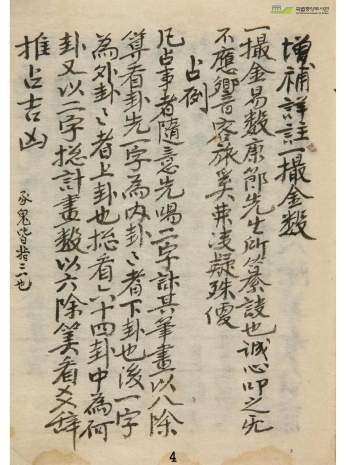 增補詳註一撮金数
一撮金易数康節先生所纂設也誠心叩之无
不應響客旅奚弗決疑殊便
占例
凡占事者隨意先喝二字計其筆畫以八除
筭看卦先一字為內卦〻者下卦也後一字
為外卦〻者上卦也揔看六十四卦中為何
卦又以二字揔計畫数以六除筭看爻辞
推占吉凶
豕鬼皆指三八也
국립중앙도서관
4